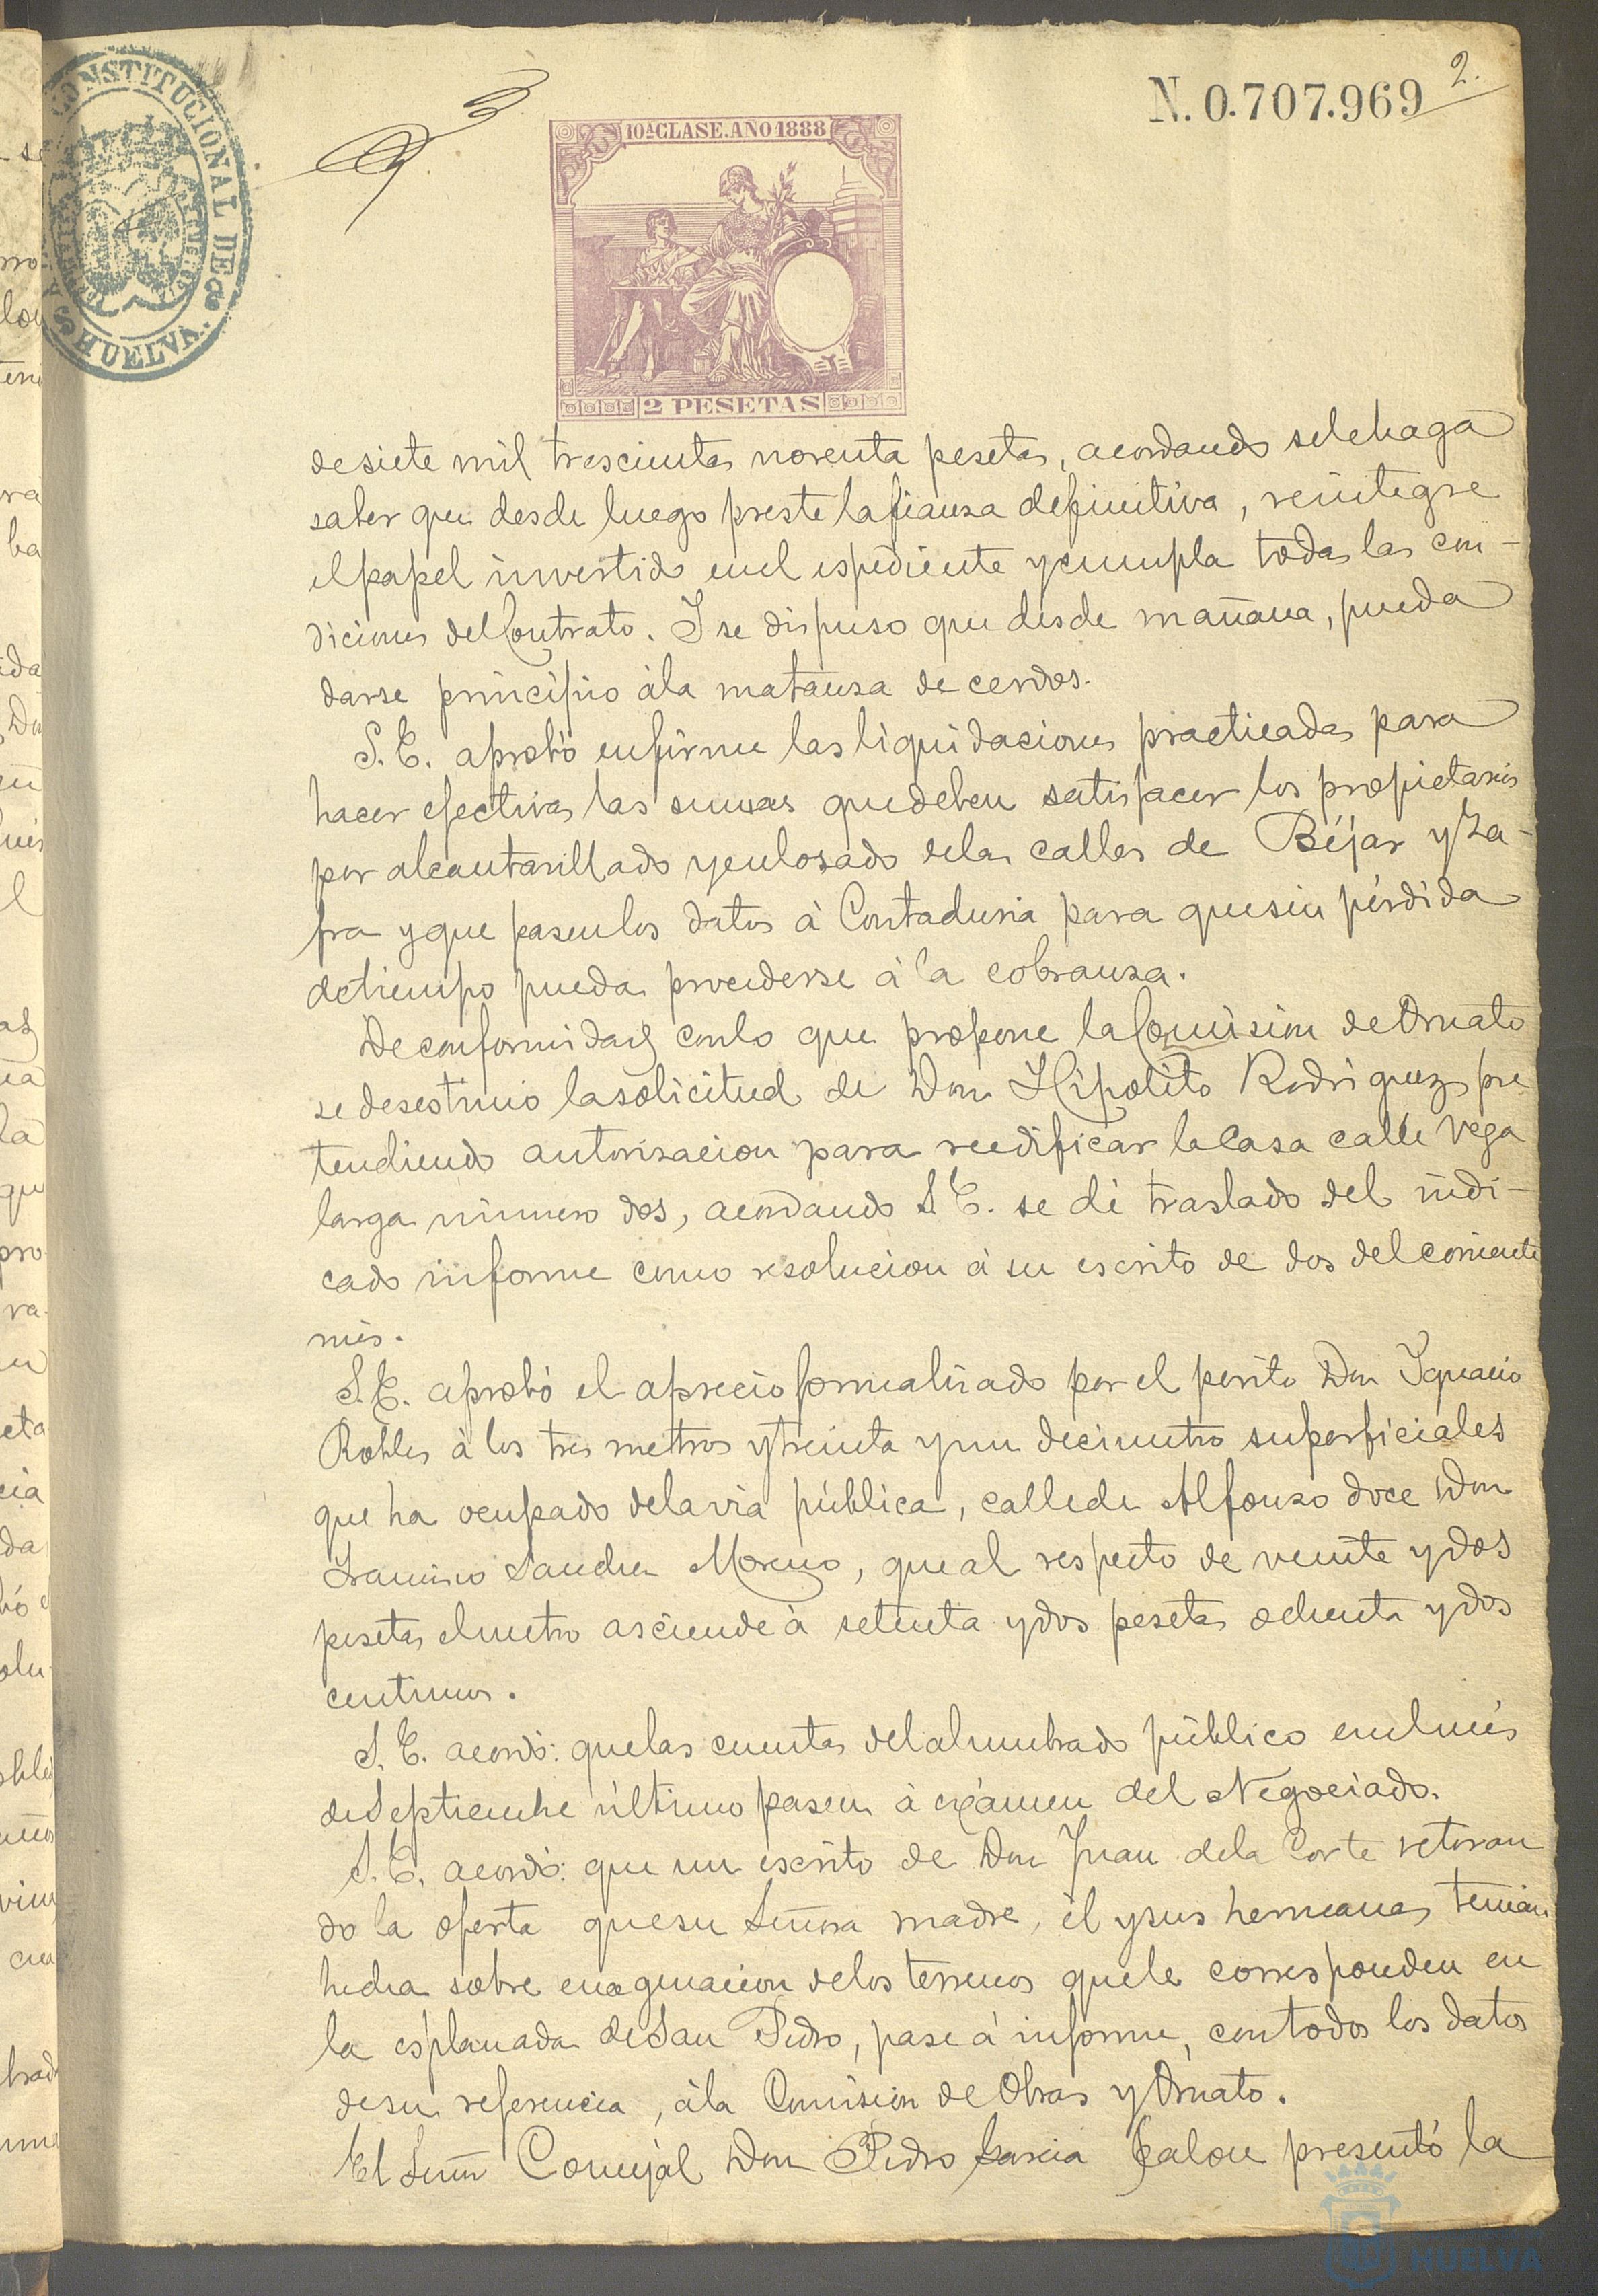 N. 0.707.969
2.
CONSTITUCIONAL DE
HUELVA.
10ª CLASE. AÑO 1888
2 PESETAS
de siete mil trescientas noventa pesetas, acordando se le haga
saber que desde luego preste la fianza definitiva, reintegre
el papel invertido en el espediente y cumpla todas las con-
diciones del Contrato. Y se dispuso que desde mañana, pueda
darse principio à la matanza de cerdos.
S. E. aprobó en firme las liquidaciones practicadas para
hacer efectivas las sumas que deben satisfacer los propietarios
por alcantarillado y enlosado de las calles de Béjar y Za-
fra y que pasen los datos à Contaduria para que sin pérdida
de tiempo pueda procederse à la cobranza.
De conformidad con lo que propone la Comision de Ornato
se desestimó la solicitud de Don Hipolito Rodriguez pre
tendiendo autorizacion para reedificar la Casa calle Vega
larga número dos, acordando S. E. se dé traslado del indi-
cado informe como resolucion à su escrito de dos del corriente
mes.
S. E. aprobó el aprecio formalizado por el perito Don Ignacio
Robles à los tres metros y treinta y un decimetro superficiales
que ha ocupado de la via pública, calle de Alfonso doce Don
Francisco Sanchez Moreno, que al respecto de veinte y dos
pesetas el metro asciende à setenta y dos pesetas ochenta y dos
centimos.
S. E. acordó: que las cuentas del alumbrado público en el mes
de Septiembre último pasen à exámen del Negociado.
S. E. acordó: que un escrito de Don Juan de la Corte retiran
do la oferta que su Señora madre, él y sus hermanas tenian
hecha sobre enagenacion de los terrenos que le corresponden en
la esplanada de San Pedro, pase à informe, con todos los datos
de su referencia, à la Comision de Obras y Ornato.
El Señor Concejal Don Pedro Garcia Jalon presentó la
HUELVA